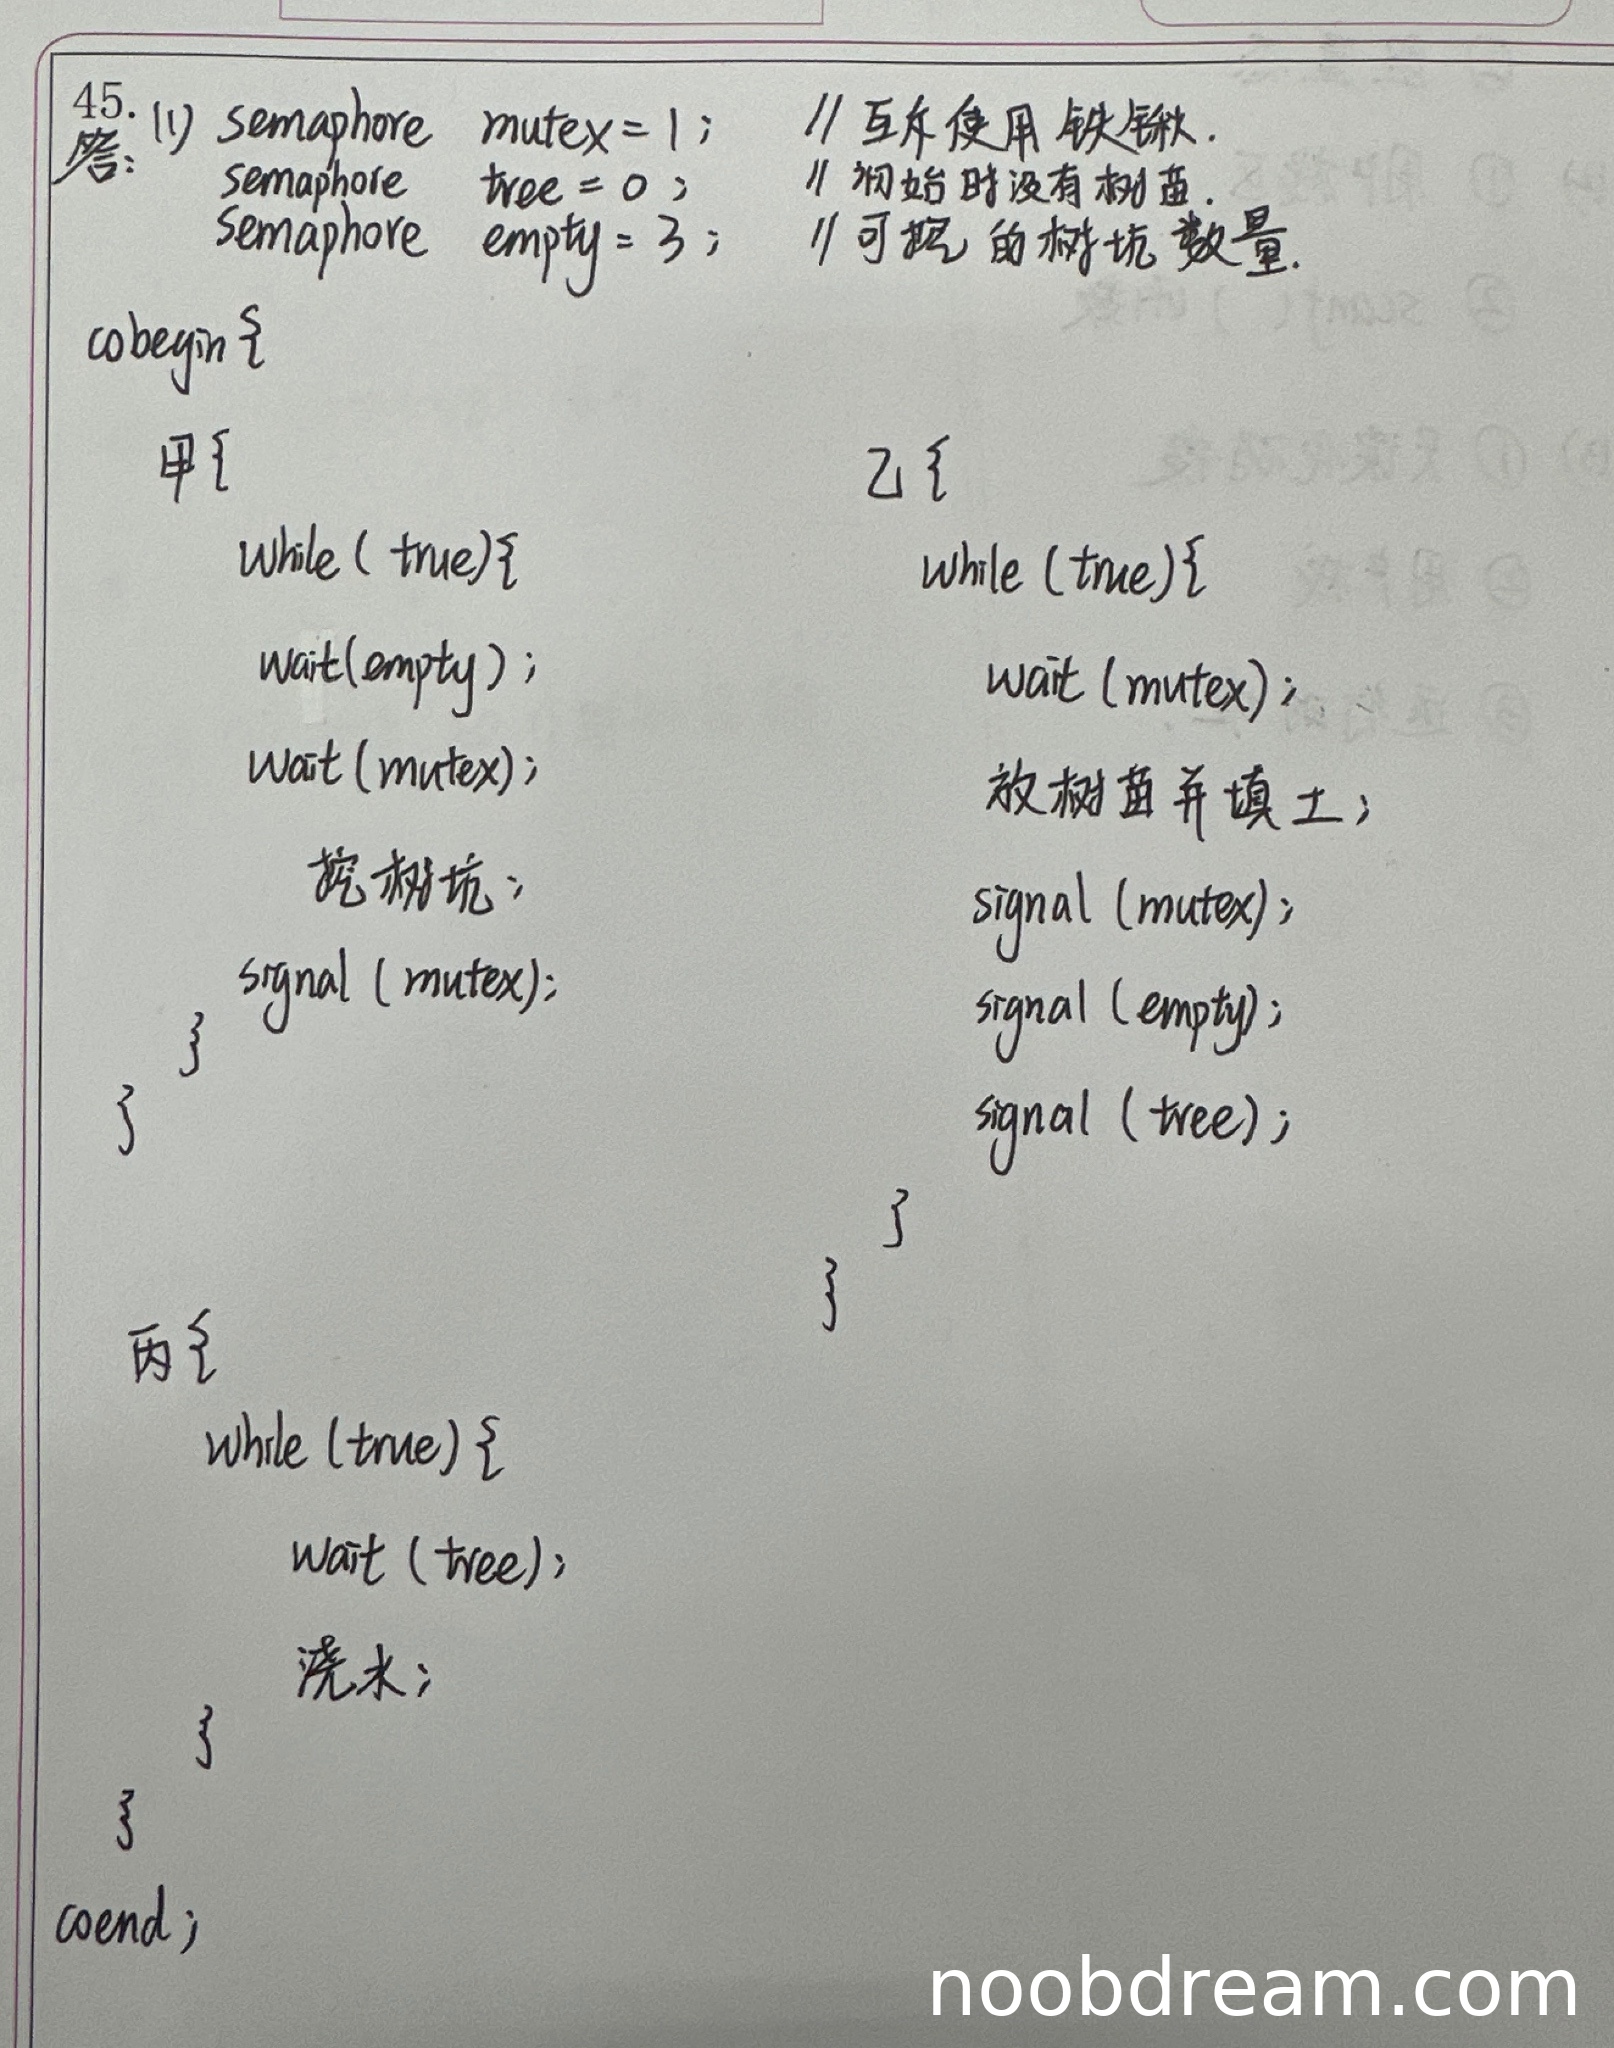 45.
答: (1) semaphore mutex = 1; // 互斥使用铁锹.
semaphore tree = 0; // 初始时没有树苗.
semaphore empty = 3; // 可挖的树坑数量.
cobegin{
甲{
while( true){
wait(empty);
wait(mutex);
挖树坑;
signal (mutex);
}
}
乙{
while (true){
wait (mutex);
放树苗并填土;
signal (mutex);
signal (empty);
signal (tree);
}
}
丙{
while (true) {
wait (tree);
浇水;
}
}
coend;
noobdream.com